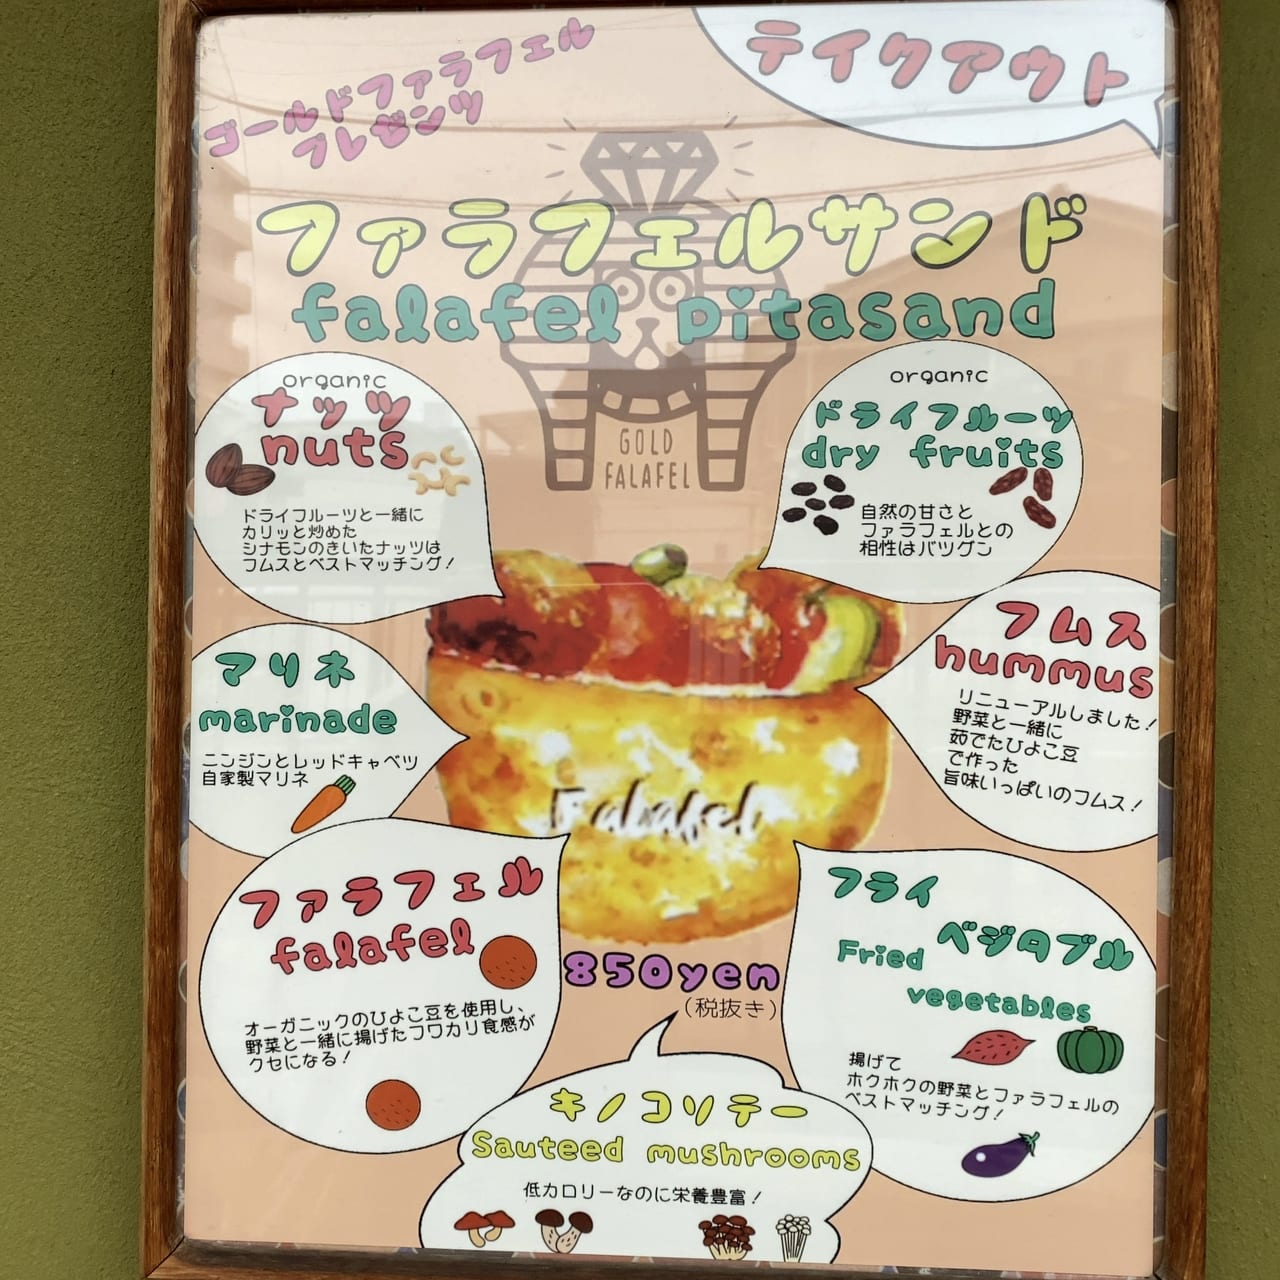 ゴールドファラフェル
プレゼンツ
テイクアウト
ファラフェルサンド
falafel pitasand
GOLD
FALAFEL
organic
ナッツ
nuts
ドライフルーツと一緒に
カリッと炒めた
シナモンのきいたナッツは
フムスとベストマッチング！
organic
ドライフルーツ
dry fruits
自然の甘さと
ファラフェルとの
相性はバツグン
マリネ
marinade
ニンジンとレッドキャベツ
自家製マリネ
フムス
hummus
リニューアルしました！
野菜と一緒に
茹でたひよこ豆
で作った
旨味いっぱいのフムス！
Falafel
ファラフェル
falafel
オーガニックのひよこ豆を使用し、
野菜と一緒に揚げたフワカリ食感が
クセになる！
850yen
（税抜き）
フライ
ベジタブル
Fried
vegetables
揚げて
ホクホクの野菜とファラフェルの
ベストマッチング！
キノコソテー
Sauteed mushrooms
低カロリーなのに栄養豊富！